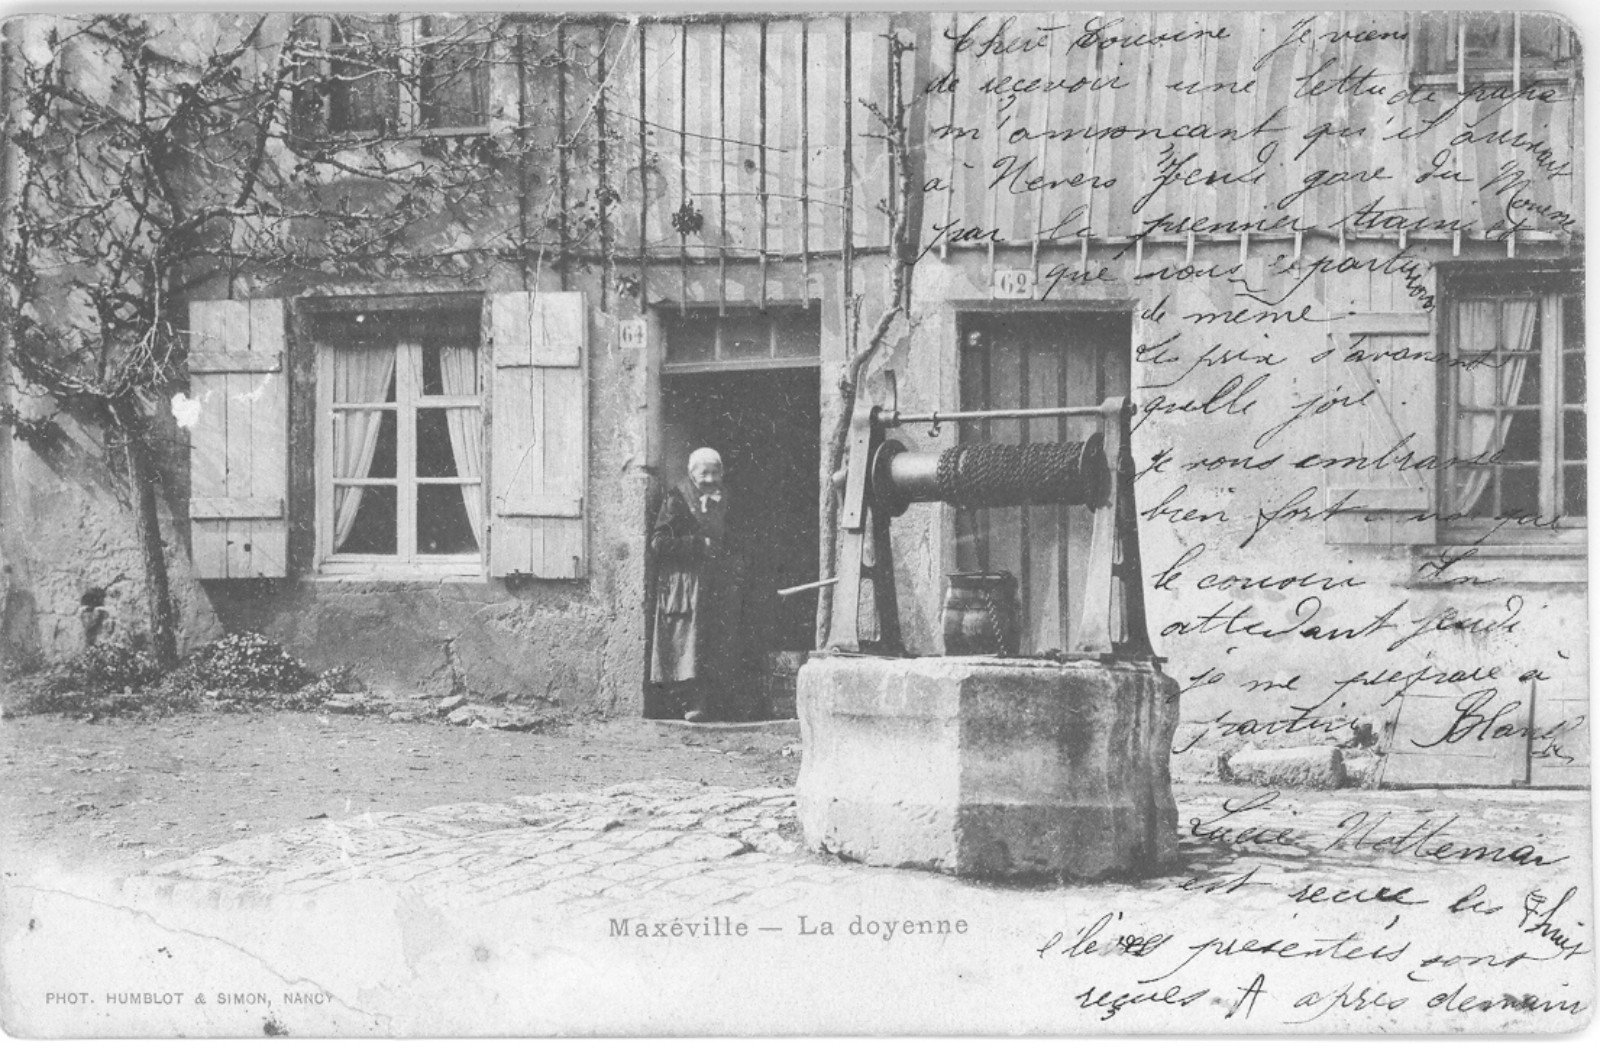 Chère Cousine Je viens
de recevoir une lettre de papa
m'annonçant qu'il
à Nevers Jeudi gare du
par le premier train et
que nous repartirons
62
de même.
64
Les prix s'avancent
quelle joie.
Je vous embrasse
bien fort
le cousin En
attendant jeudi
je me prépare à
partir
est recue les
Maxéville — La doyenne
élèves présentées sont
reçues. A après demain
PHOT. HUMBLOT & SIMON, NANCY